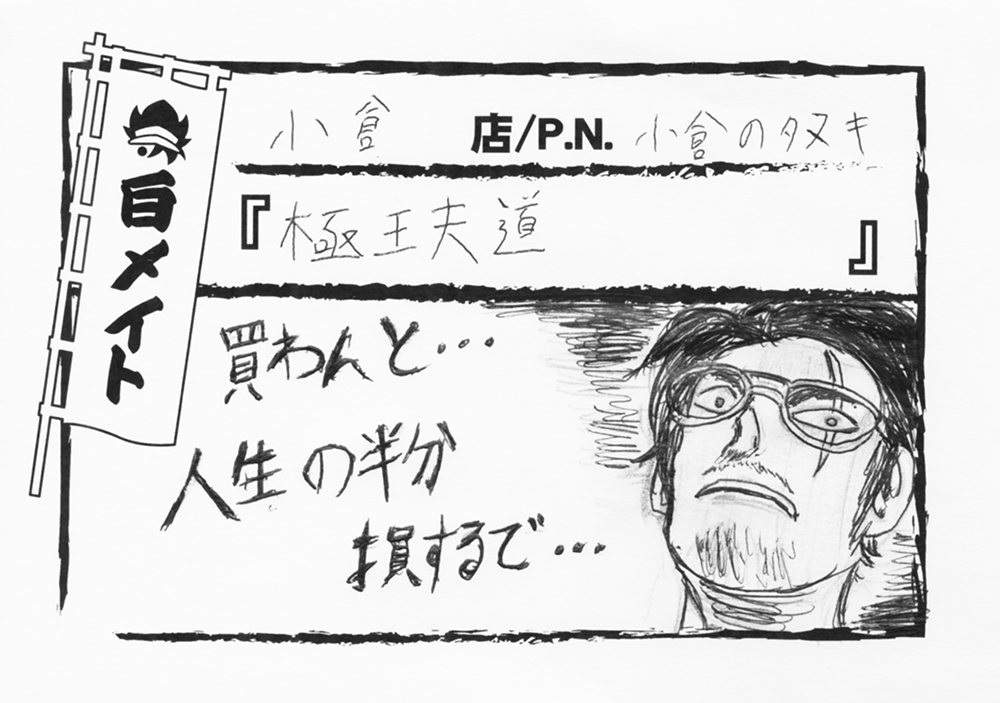 百メイト
小倉 店/P.N. 小倉のタヌキ
『極王夫道』
買わんと…
人生の半分
損するで…